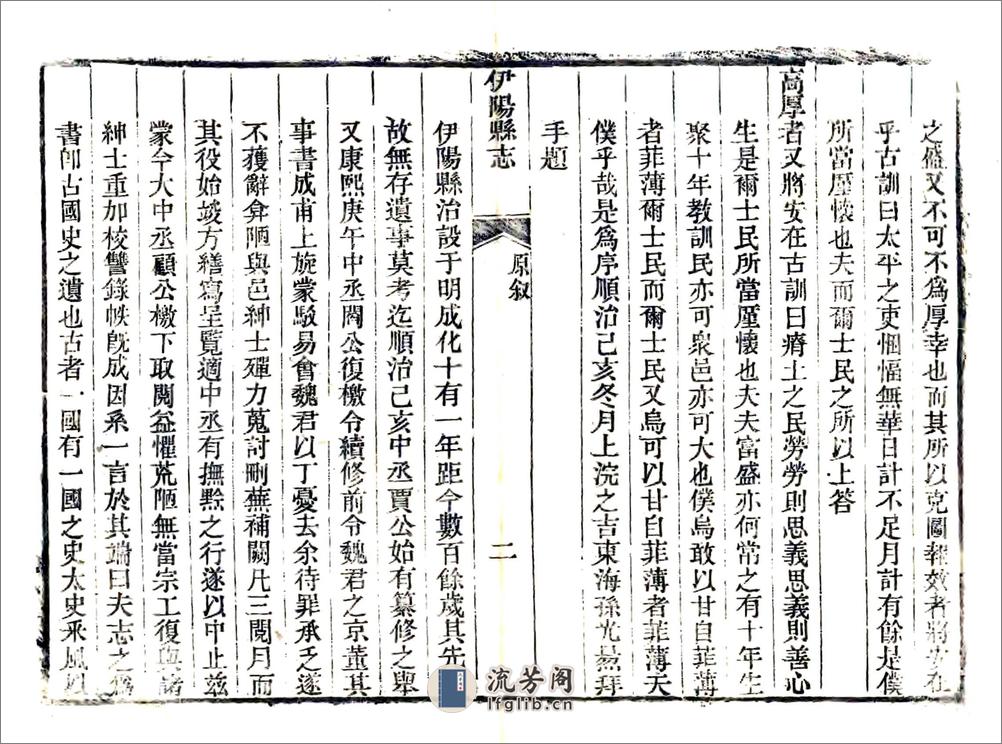 之盛又不可不爲厚幸也而其所以克圖報效者將安在
乎古訓曰太平之吏悃愊無華日計不足月計有餘是僕
所當厪懷也夫而爾士民之所以上答
高厚者又將安在古訓曰瘠土之民勞勞則思義思義則善心
生是爾士民所當厪懷也夫夫富盛亦何常之有十年生
聚十年教訓民亦可衆邑亦可大也僕烏敢以甘自菲薄
者菲薄爾士民而爾士民又烏可以甘自菲薄者菲薄夫
僕乎哉是爲序順治己亥冬月上浣之吉東海孫光昜拜
手題
伊陽縣志
原叙
二
伊陽縣治設于明成化十有一年距今數百餘歲其先
故無存遺事莫考迄順治己亥中丞賈公始有纂修之舉
又康熙庚午中丞閻公復檄令續修前令魏君之京董其
事書成甫上旋蒙駁易會魏君以丁憂去余待罪承乏遂
不獲辭弇陋與邑紳士殫力蒐討刪蕪補闕凡三閱月而
其役始竣方繕寫呈覽適中丞有撫黔之行遂以中止玆
蒙今大中丞顧公檄下取閱益懼荒陋無當宗工復與諸
紳士重加校讐錄帙旣成因系一言於其端曰夫志之爲
書卽古國史之遺也古者一國有一國之史太史釆風
流芳阁
lfglib.cn